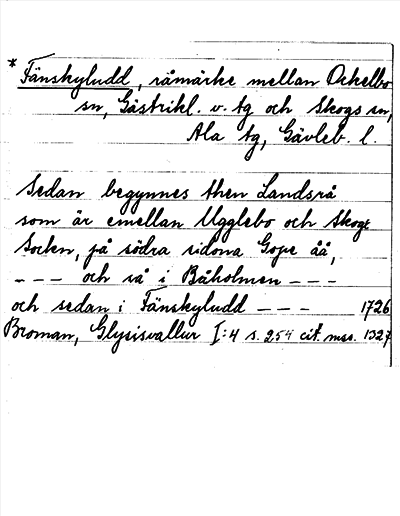 * Fänskyludd, råmärke mellan Ockelbo
sn, Gästrikl. v. tg och Skogs sn,
Ala tg, Gävleb. l.
Sedan begynnes then Landsrå
som är emellan Ugglebo och Skogs
Socken, på södra sidona Gope åå,
– – – och så i Båholmen – – –
och sedan i Fänskyludd – – – 1726
Broman, Glysisvallur I:4 s. 254 cit. mss. 1327